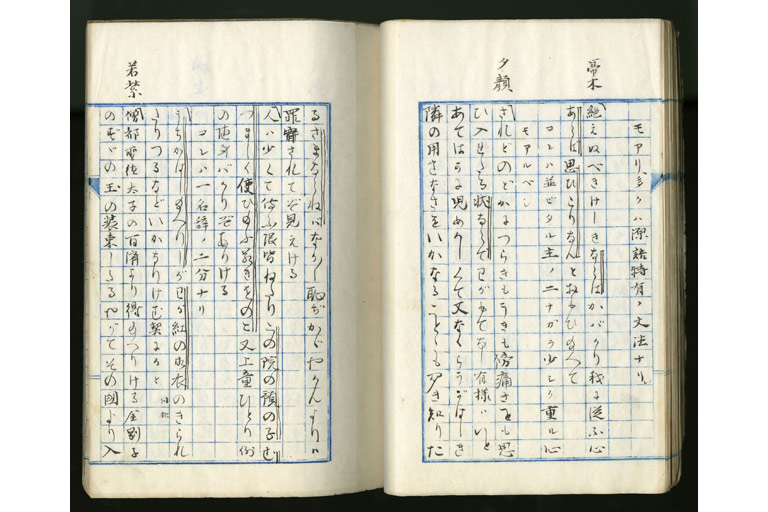 帚木
モアリ、多クハ源語特有ノ文法ナリ、
絶えぬべきけしきならばかバかり我に従ふ心
あらば思ひこりなんとおもひ給へて
コレハ並ビタル主ノ二ナガラ少シク重ル心
モアルベシ
夕顔
されとのどかにつらきもうきも傍痛きをも思
ひ入れたる状ならでわが もてなし有様ハいと
あてはかに児めかしくて又なくらうがはしき
隣の用さなさをいかなることとも聞き知りた
るさまならねバなかなか恥ぢかがやかんよりハ
罪 されてぞ見えける
人ハ少くて侍ふ限皆ねたりこの院の預の子
つましく使ひ給ふ若きをのこ又上童ひとり例
の随身バかりぞありける
コレハ一名詞ノ二分ナリ
若紫
うちかけ給へりしが 紅の御衣のきられ
たりつるなどいかなりけむ契にかと
僧都聖徳太子の百済より得給へりける金剛子
のずずの玉の装束したるやがてその国より入